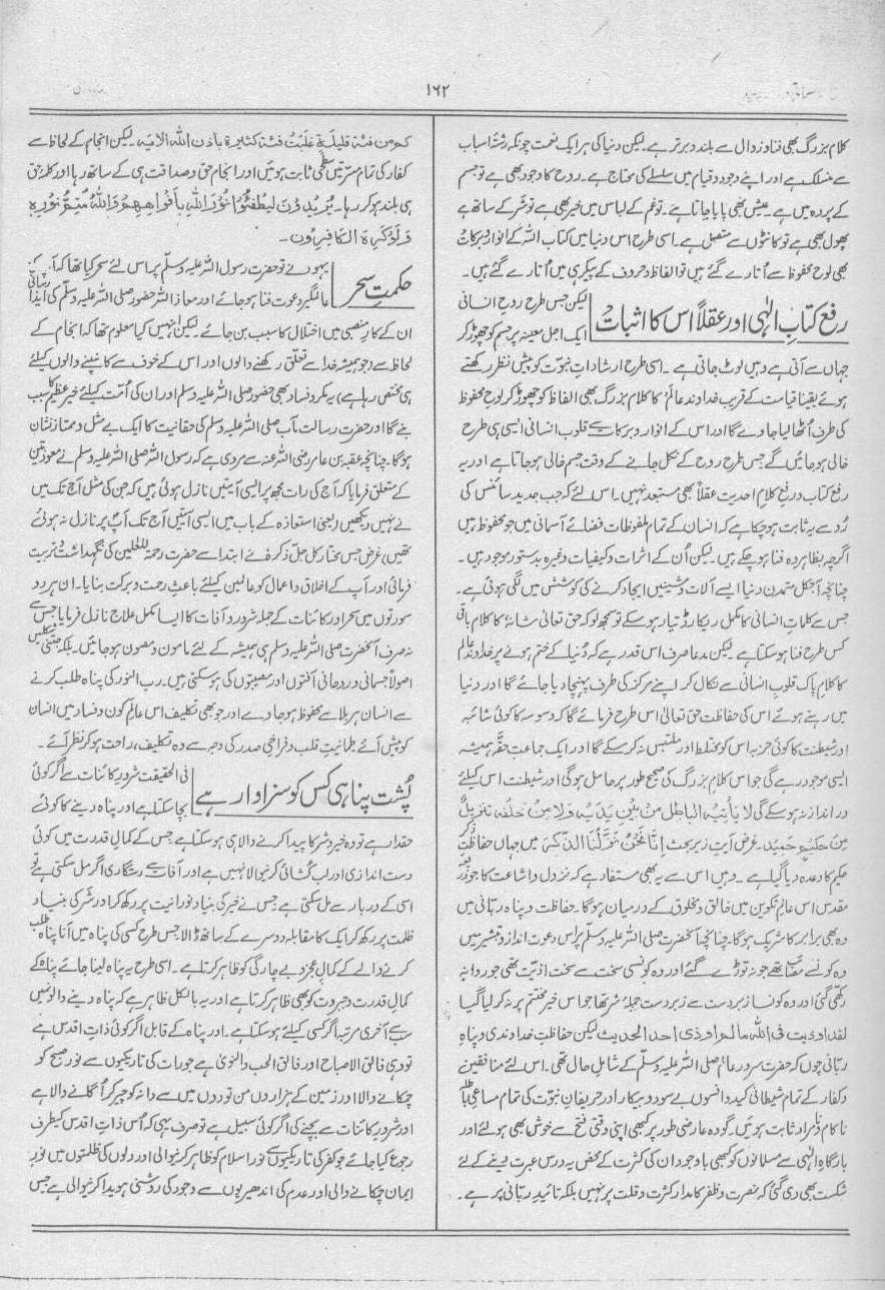 ۱۶۲
کلام بزرگ بھی فنا و زوال سے بلند و برتر ہے۔ لیکن دنیا کی ہر ایک نعمت چونکہ رشتۂ اسباب
سے منسلک ہے اور اپنے وجود و قیام میں سلسلے کی محتاج ہے۔ روح کا وجود بھی ہے تو جسم
کے پردہ میں ہے۔ عیش بھی پایا جاتا ہے۔ تو غم کے لباس میں خیر بھی ہے تو شر کے ساتھ ہے
پھول بھی ہے تو کانٹوں سے متصل ہے۔ اسی طرح اس دنیا میں کتاب اللہ کے انوار و برکات
بھی لوح محفوظ سے اُتارے گئے ہیں تو الفاظ و حروف کے پیکر ہی میں اُتارے گئے ہیں۔
رفع کتابِ الٰہی اور عقلاً اس کا اثبات
لیکن جس طرح روح انسانی
ایک اجل معینہ پر جسم کو چھوڑ کر
جہاں سے آتی ہے وہیں لوٹ جاتی ہے۔ اسی طرح ارشادات نبوّت کو پیش نظر رکھتے
ہوئے یقیناً قیامت کے قریب خداوند عالم کا کلام بزرگ بھی الفاظ کو چھوڑ کر لوح محفوظ
کی طرف اُٹھا لیا جاوے گا اور اس کے انوار و برکات سے قلوب انسانی ایسی ہی طرح
خالی ہو جائیں گے جس طرح روح کے نکل جانے کے وقت جسم خالی ہو جاتا ہے اور یہ
رفع کتاب و رفع کلام احدیت عقلاً بھی مستبعد نہیں۔ اس لئے کہ جب جدید سائنس کی
رُو سے یہ ثابت ہو چکا ہے کہ انسان کے تمام ملفوظات فضائے آسمانی میں جو محفوظ ہیں
اگرچہ بظاہر وہ فنا ہو چکے ہیں۔ لیکن اُن کے اثرات و کیفیات وغیرہ بدستور موجود ہیں۔
چنانچہ آجکل متمدن دنیا ایسے آلات و مشینیں ایجاد کرنے کی کوشش میں لگی ہوئی ہے۔
جس سے کلماتِ انسانی کا مکمل ریکارڈ تیار ہو سکے تو سمجھ لو کہ حق تعالیٰ شانہٗ کا کلام باقی
کس طرح فنا ہو سکتا ہے۔ لیکن مدعا صرف اس قدر ہے کہ دُنیا کے ختم ہونے پر خداوند عالم
کا کلام پاک قلوب انسانی سے نکال کر اپنے مرکز کی طرف پہنچا دیا جائے گا اور دنیا
میں رہتے ہوئے اس کی حفاظت حق تعالیٰ اس طرح فرمائے گا کہ وسوسہ کا کوئی شائبہ
اور شیطنت کا کوئی حربہ اس کو مختلط اور ملتبس نہ کر سکے گا اور ایک جماعت حقہ ہمیشہ
ایسی موجود رہے گی جو اس کلام بزرگ کی صحیح طور پر حامل ہو گی اور شیطنت اس کیلئے
در انداز نہ ہو سکے گی لا یأتیه الباطل من بین یدیه ولا من خلفه تنزیل
من حکیم حمید۔ غرض آیت زیر بحث انا نحن نزلنا الذکر میں جہاں حفاظت ذکر
حکیم کا وعدہ دیا گیا ہے۔ وہیں اس سے یہ بھی مستفاد ہے کہ نزول و اشاعت کا جو ذریعہ
مقدس اس عالم تکوین میں خالق و مخلوق کے درمیان ہوگا۔ حفاظت و پناہ ربّانی میں
وہ بھی برابر کا شریک ہوگا۔ چنانچہ آنحضرت صلی اللہ علیہ وسلم پر اس دعوت انداز و تبشیر میں
وہ کونسے مصائب تھے جو نہ توڑے گئے اور وہ کونسی سخت سے سخت اذیت تھی جو روا نہ
رکھی گئی اور وہ کونسا زبردست سے زبردست حملۂ شر تھا جو اس خیر مختتم پر نہ کر لیا گیا
لقد اوذیت فی اللہ مالم اوذی احد الحدیث لیکن حفاظت خداوندی و پناہ
ربّانی چوں کہ حضرت سرور عالم صلی اللہ علیہ وسلم کے شامل حال تھی۔ اس لئے منافقین
و کفار کے تمام شیطانی کید و افسوں بے سود و بیکار اور حریفان نبوّت کی تمام مساعی باطلہ
ناکام و نامراد ثابت ہوئیں۔ گو وہ عارضی طور پر کبھی اپنی وقتی فتح سے خوش بھی ہو لئے اور
بارگاہ الٰہی سے مسلمانوں کو کبھی باوجود ان کی کثرت کے محض یہ درس عبرت دینے کے لئے
شکست بھی دی گئی کہ نصرت و ظفر کا مدار کثرت و قلت پر نہیں بلکہ تائید ربّانی پر ہے۔
کم من فئة قلیلة غلبت فئة کثیرة باذن اللہ الایه۔ لیکن انجام کے لحاظ سے
کفار کی تمام مسرتیں سطحی ثابت ہوئیں اور انجام حق و صداقت ہی کے ساتھ رہا اور کلمۂ حق
ہی بلند ہو کر رہا۔ یریدون لیطفئوا نور اللہ بافواههم واللہ متم نوره
ولو کره الکافرون۔
حکمتِ سحر
یہود نے تو حضرت رسول اللہ علیہ وسلم پر اس لئے سحر کیا تھا کہ آپ کی ربانی
عالمگیر دعوت فنا ہو جائے اور معاذ اللہ حضور صلی اللہ علیہ وسلم کی ایذا
ان کے کار منصبی میں اختلال کا سبب بن جائے۔ لیکن انہیں کیا معلوم تھا کہ انجام کے
لحاظ سے (جو ہمیشہ خدا سے تعلق رکھنے والوں اور اس کے خوف سے کانپنے والوں کیلئے
ہی مختص رہا ہے) یہ مکر و فساد بھی حضور صلی اللہ علیہ وسلم اور ان کی اُمّت کیلئے خیر عظیم کا سبب
بنے گا اور حضرت رسالت مآب صلی اللہ علیہ وسلم کی حقانیت کا ایک بے مثل و ممتاز نشان
ہوگا۔ چنانچہ عقبہ بن عامر رضی اللہ عنہ سے مروی ہے کہ رسول اللہ صلی اللہ علیہ وسلم نے معوذتین
کے متعلق فرمایا کہ آج کی رات مجھ پر ایسی آیتیں نازل ہوئی ہیں کہ جن کی مثل آج تک میں
نے نہیں دیکھیں (یعنی استعاذہ کے باب میں ایسی آیتیں آج تک آپ پر نازل نہ ہوئے
تھیں) غرض جس مختار کل جل ذکرہٗ نے ابتدا سے حضرت رحمۃ للعلمین کی نگہداشت و تربیت
فرمائی اور آپ کے اخلاق و اعمال کو عالمین کیلئے باعث رحمت و برکت بنایا۔ ان ہر دو
سورتوں میں سحر اور کائنات کے جملہ شرور و آفات کا ایسا مکمل علاج نازل فرمایا جس سے
نہ صرف آنحضرت صلی اللہ علیہ وسلم ہی ہمیشہ کے لئے مامون و مصئون ہو جائیں۔ بلکہ جتنی شکلیں
اصولاً جسمانی و روحانی آفتوں اور مصیبتوں کی ہو سکتی ہیں۔ رب النور کی پناہ طلب کرنے
سے انسان ہر بلا سے محفوظ ہو جاوے اور جو بھی تکلیف اس عالم کون و فساد میں انسان
کو پیش آئے طمانیت قلب و فراخی صدر کی وجہ سے وہ تکلیف، راحت ہو کر نظر آئے۔
پُشت پناہی کس کو سزاوار ہے
فی الحقیقت شرور کائنات سے اگر کوئی
بچا سکتا ہے اور پناہ دینے کا کوئی
حقدار ہے تو وہ خیر و شر کا پیدا کرنے والا ہی ہو سکتا ہے جس کے کمال قدرت میں کوئی
دست اندازی اور لب کشائی کرنیوالا نہیں ہے اور آفات سے رستگاری اگر مل سکتی ہے تو
اسی کے دربار سے مل سکتی ہے جس نے خیر کی بنیاد نورانیت پر رکھ کر اور شر کی بنیاد
ظلمت پر رکھ کر ایک کا مقابلہ دوسرے کے ساتھ ڈالا جس طرح کسی کی پناہ میں آنا پناہ طلب
کرنے والے کے کمال عجز و بے چارگی کو ظاہر کرتا ہے۔ اسی طرح یہ پناہ لینا جائے پناہ کے
کمال قدرت و جبروت کو بھی ظاہر کرتا ہے اور یہ بالکل ظاہر ہے کہ پناہ دینے والوں میں
سب سے آخری مرتبہ اگر کسی کیلئے ہو سکتا ہے۔ اور پناہ کے قابل اگر کوئی ذات اقدس ہے
تو وہی فالق الاصباح اور فالق الحب والنویٰ ہے جو رات کی تاریکیوں سے نور صبح کو
چمکانے والا اور زمین کے ہزاروں من تودوں میں سے دانہ کو چیر کر اُگانے والا ہے
اور شرور کائنات سے بچنے کی اگر کوئی سبیل ہے تو صرف یہی کہ اُس ذات اقدس کیطرف
رجوع کیا جائے جو کفر کی تاریکیوں سے نور اسلام کو ظاہر کرنیوالی اور دلوں کی ظلمتوں میں نور
ایمان چمکانے والی اور عدم کی اندھیریوں سے وجود کی روشنی ہویدا کرنیوالی ہے جس